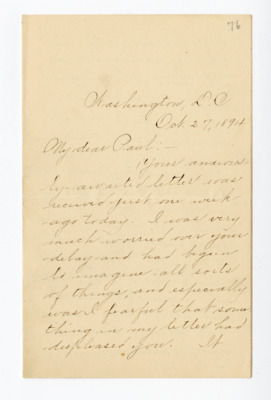 76
Washington, D.C.
Oct. 27, 1894
My dear Paul:—
Your anxious-
ly-awaited letter was
received just one week
ago today. I was very
much worried over your
delay and had begun
to imagine all sorts
of things, and especially
was I fearful that some
thing in my letter had
displeased you. It